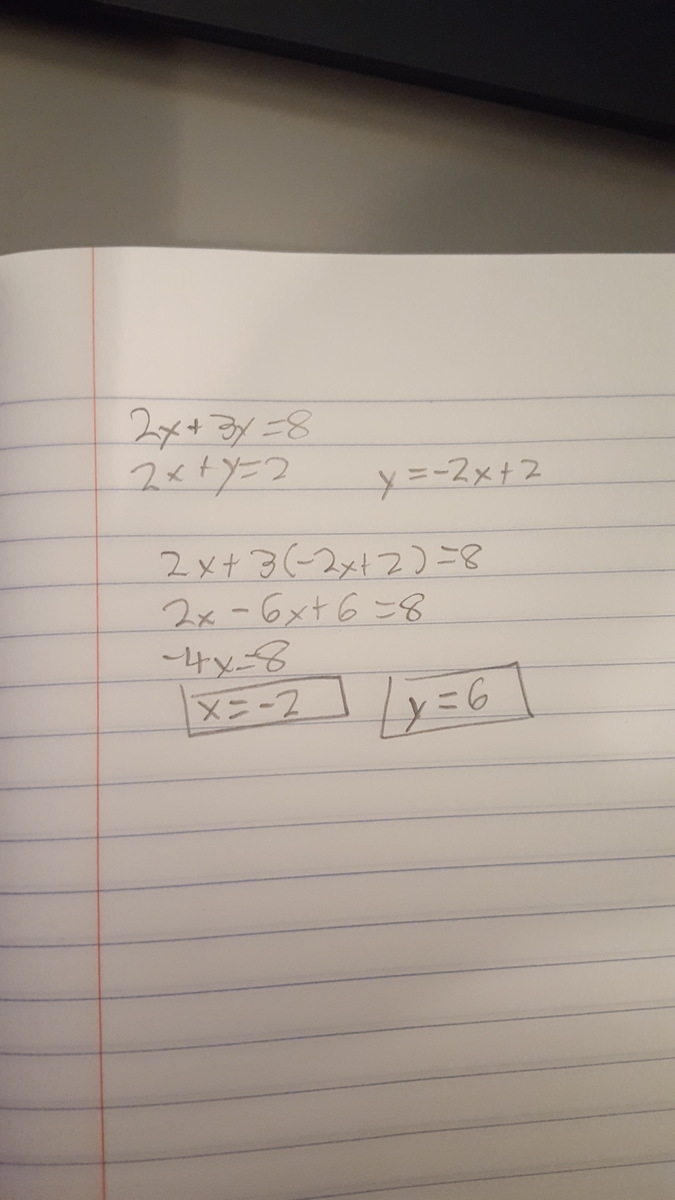 2x+3y=8
2x+y=2 y=-2x+2
2x+3(-2x+2)=8
2x-6x+6=8
-4x=8
x=-2 y=6